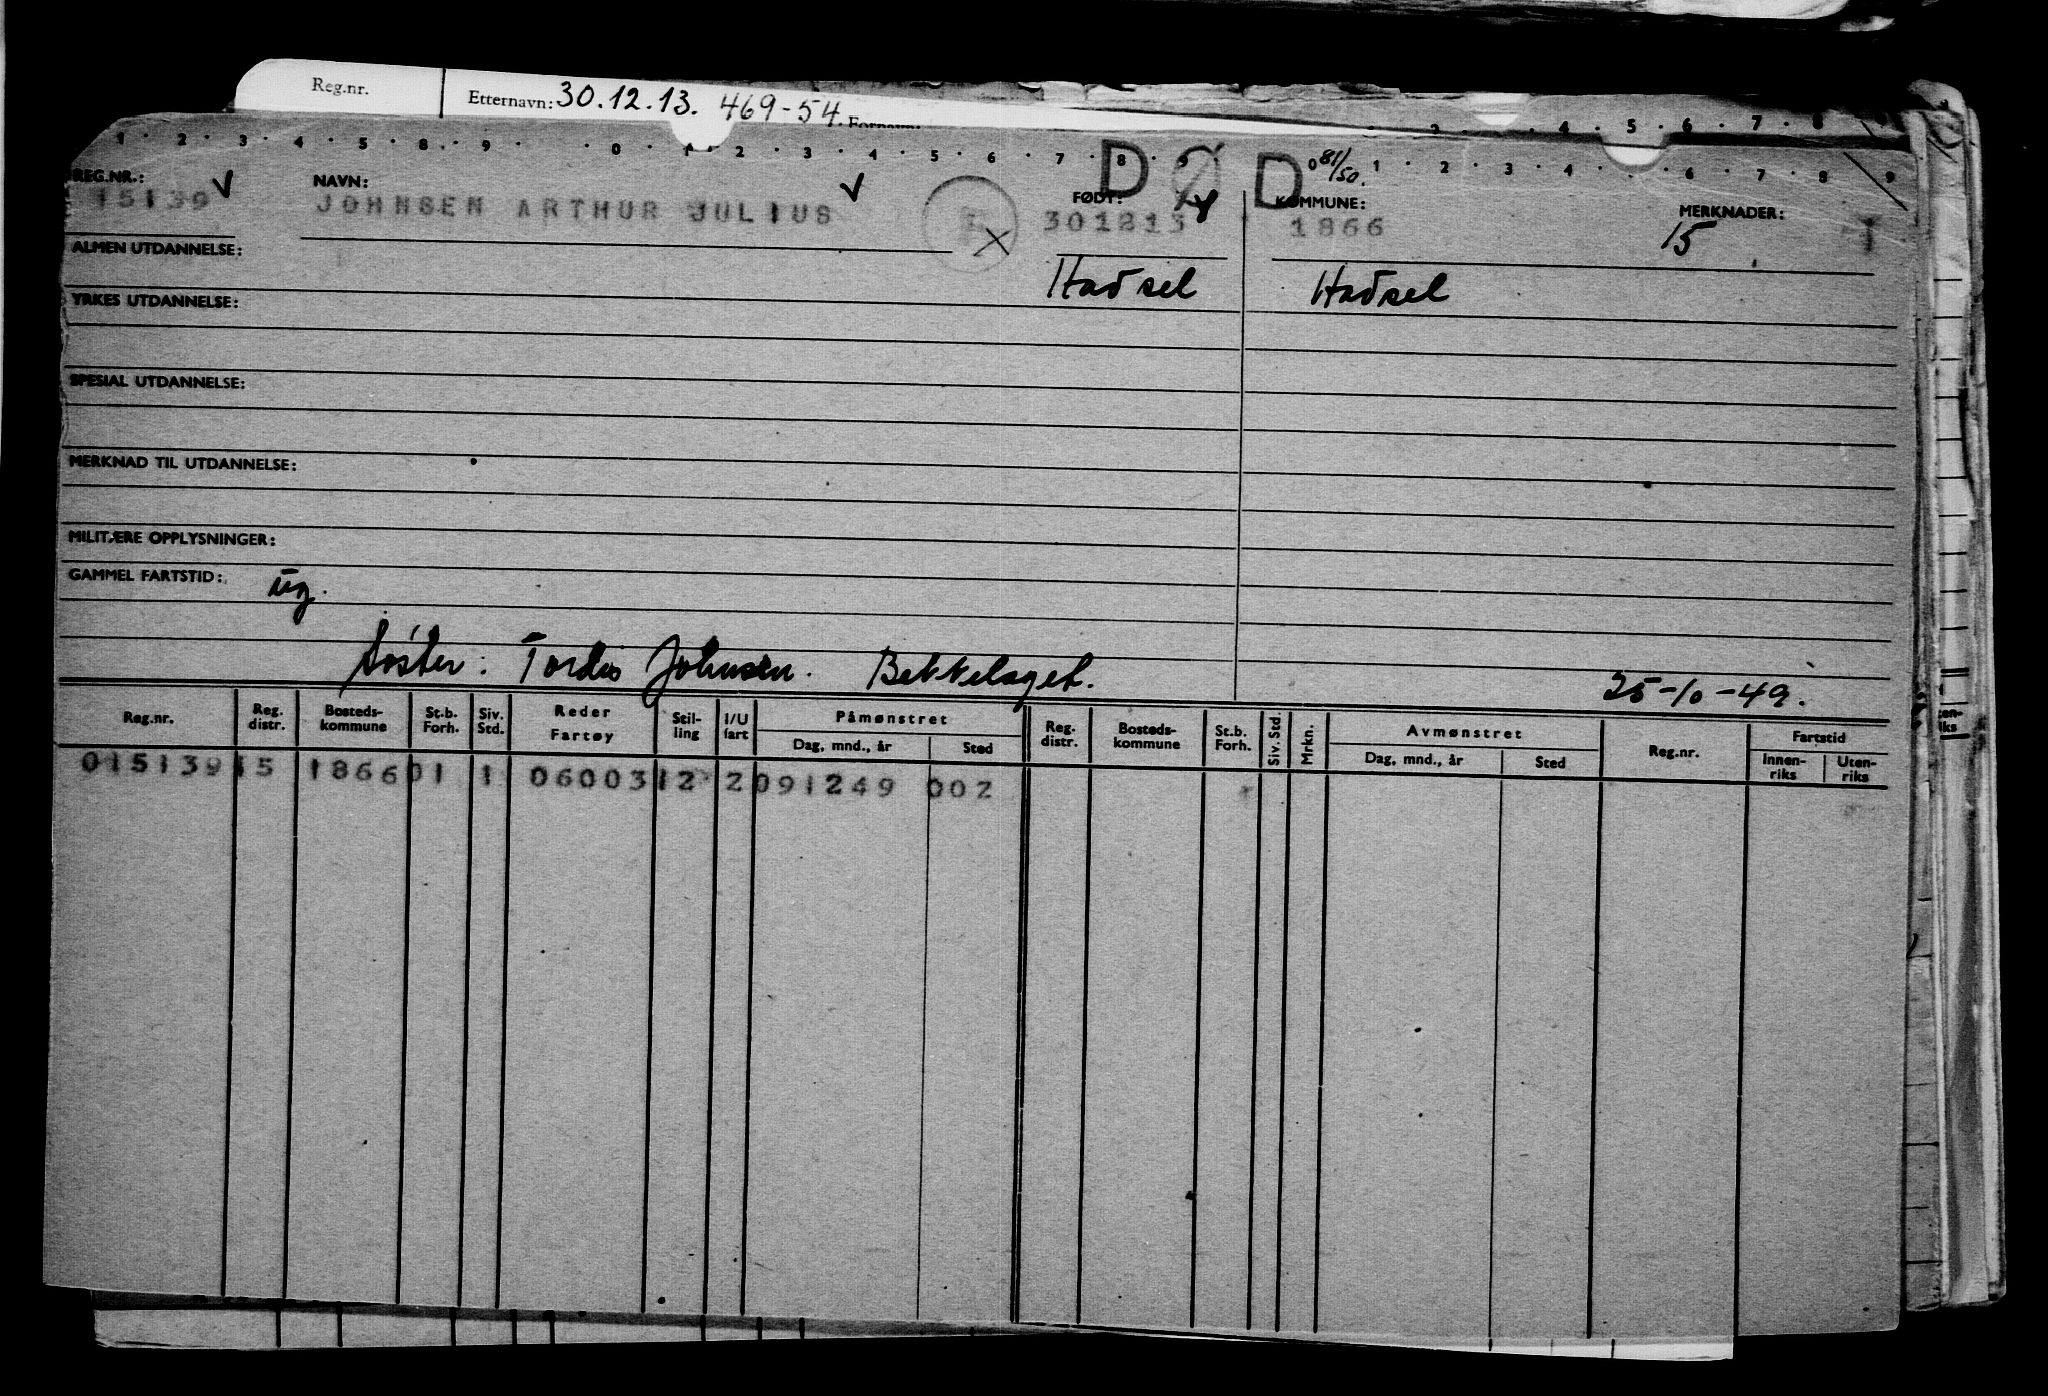 Reg.nr. Etternavn: 30.12.13. 469-54. Fornavn:
1 · 2 · 3 · 4 · 5 · 8 · 9 · · 0 · 1 · 2 · 3 · 4 · 5 · 6 · 7 · 8 · 9 0 1 · 2 · 3 · 4 · 6 · 7 · 8 9
2 4 · 5 · 6 · 7 · 8
DØD 81/50.
REG.NR.: NAVN: FØDT: KOMMUNE: MERKNADER:
15139 JOHNSEN ARTHUR JULIUS 301213 1866 15
ALMEN UTDANNELSE: Hadsel Hadsel
YRKES UTDANNELSE:
SPESIAL UTDANNELSE:
MERKNAD TIL UTDANNELSE:
MILITÆRE OPPLYSNINGER:
GAMMEL FARTSTID: ug.
Søster: Tordis Johnsen. Bekkelaget. 25-10-49.
Reg.nr. Reg. distr. Bosteds-kommune St.b. Forh. Siv. Std. Reder Fartøy Stil-ling I/U fart Påmønstret Dag, mnd., år Sted Reg. distr. Bosteds-kommune St.b. Forh. Siv. Std. Mrkn. Avmønstret Dag, mnd., år Sted Reg.nr. Fartstid Innen-riks Uten-riks
015139 15 1866 01 1 06003 12 2 091249 002